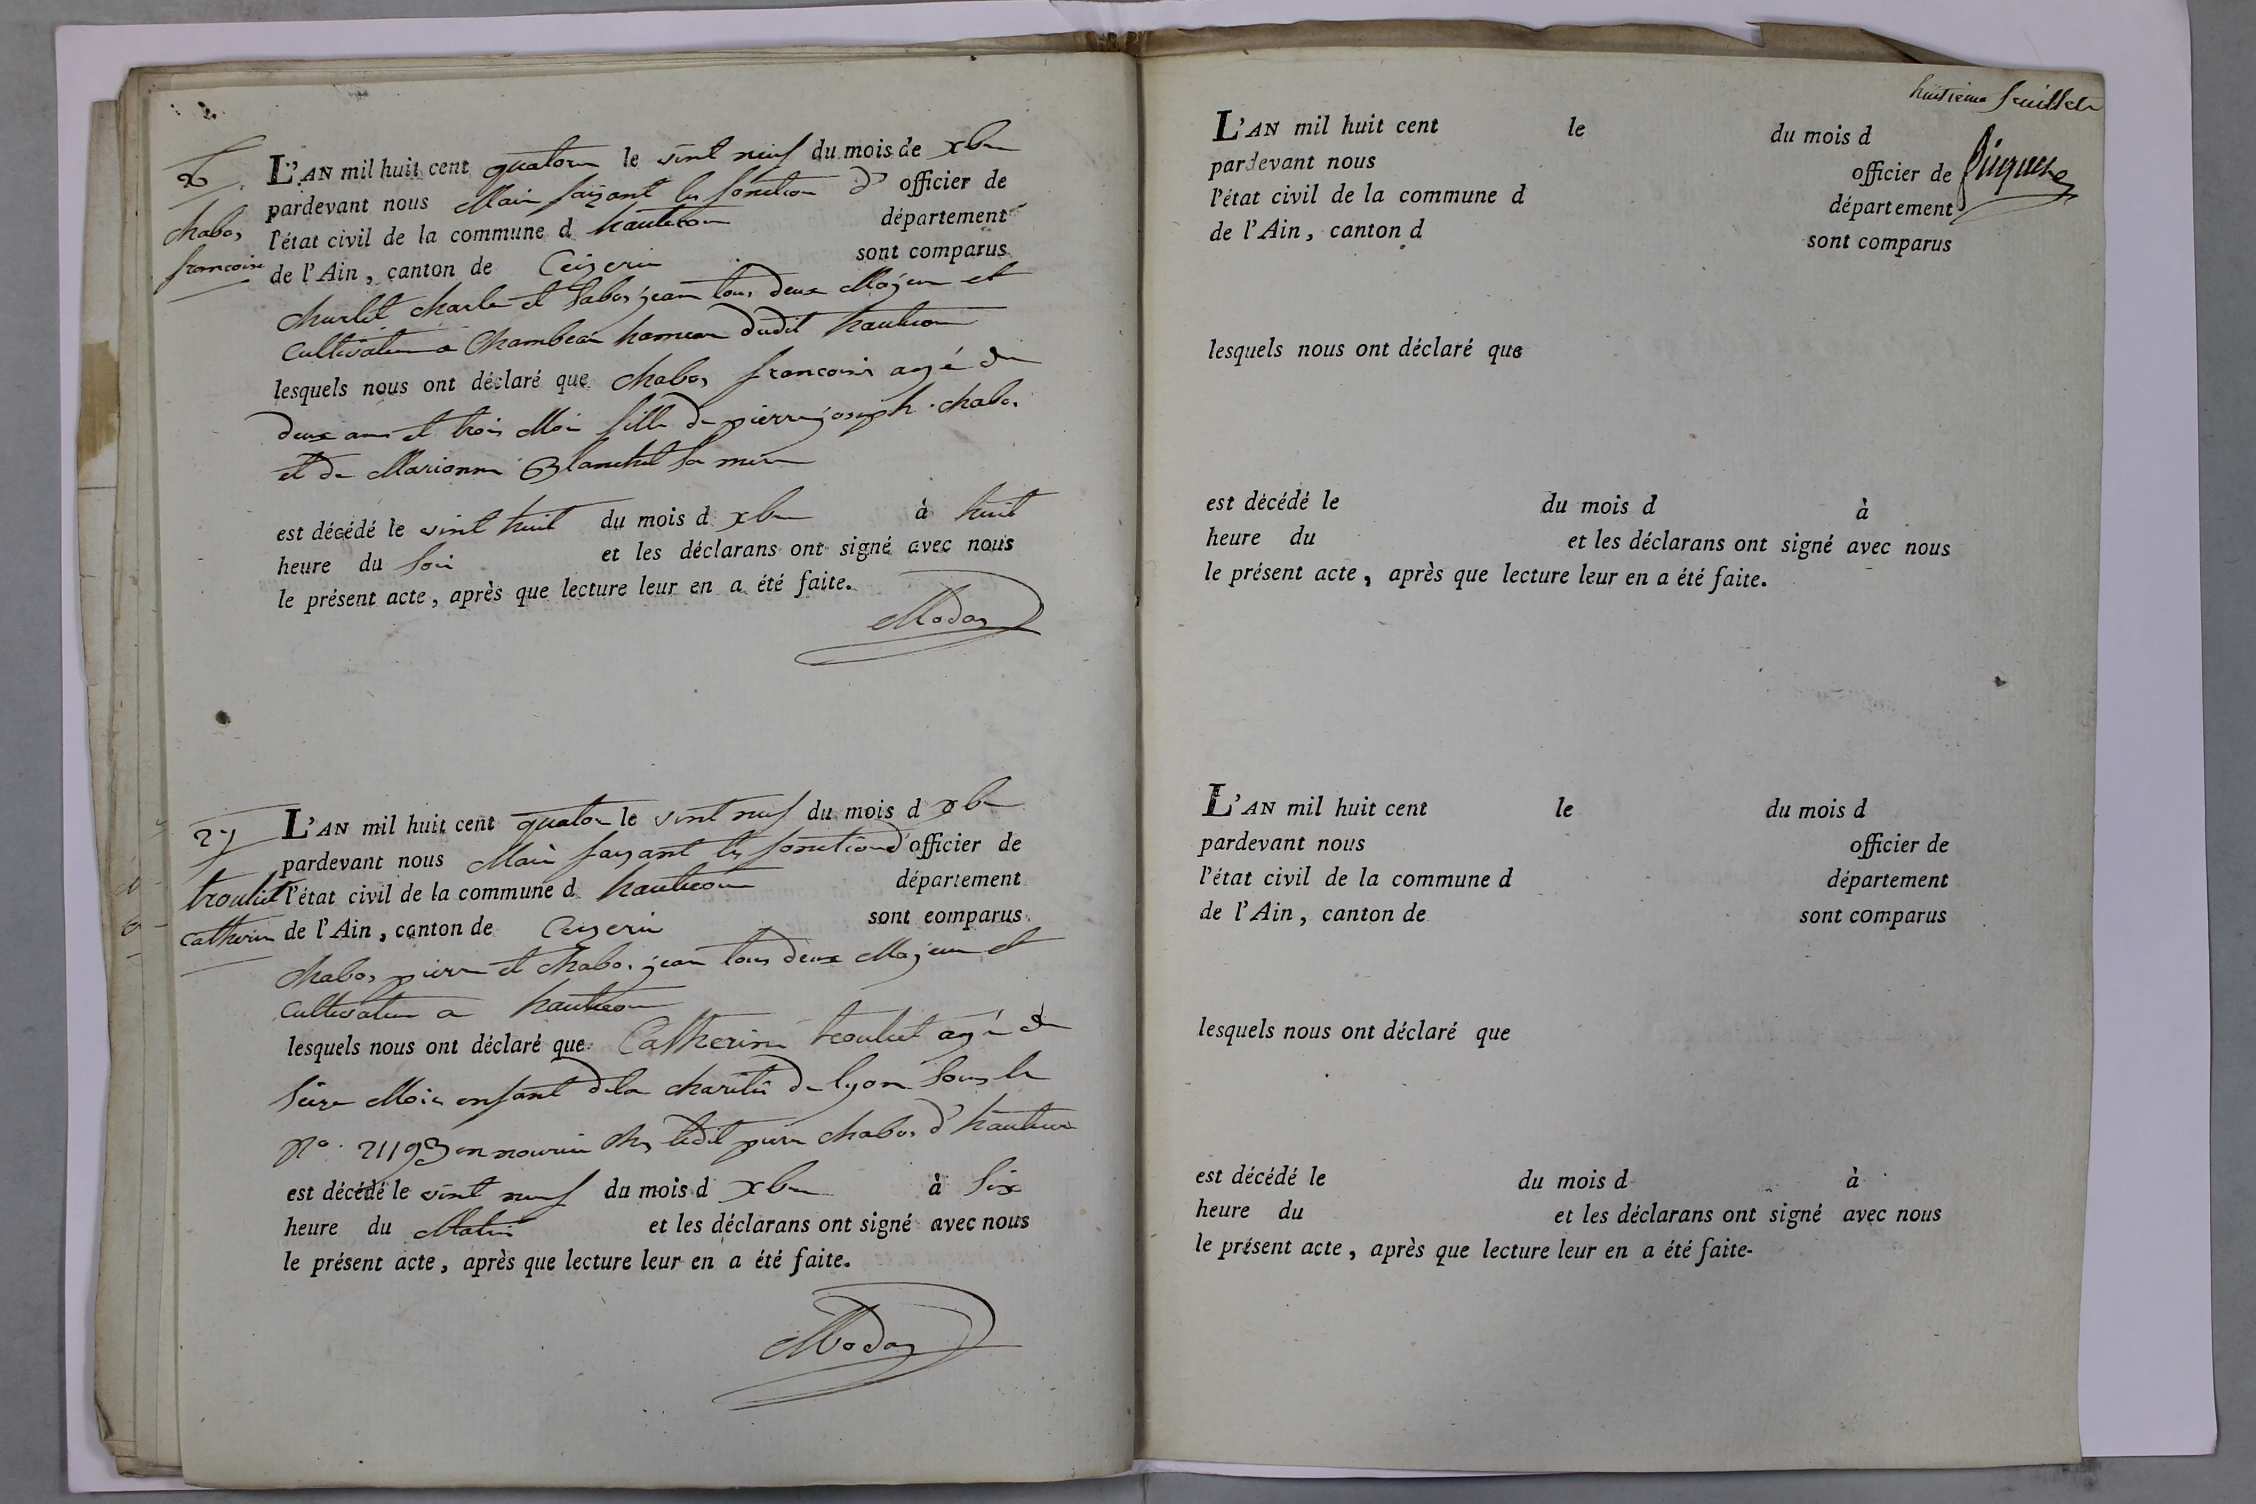 26
chabos
francoise
L'AN mil huit cent quatorze le vint neuf du mois de xbre
pardevant nous Maire faizant les fonction d' officier de
l'état civil de la commune d hautecour département
de l'Ain, canton de Ceizeria sont comparus
charle et jean tous deux Majeur et
Cultivateur a Chambeau hameau dudit hautecour
lesquels nous ont déclaré que chabos francoise agé de
deux ans et trois Moi fille de pierre joseph chabos
et de Marianne Blanchet sa mere
est décédé le vint huit du mois d xbre à huit
heure du soir et les déclarans ont signé avec nous
le présent acte, après que lecture leur en a été faite.
Modas
27
troulliet
catherine
L'AN mil huit cent quator le vint neuf du mois d xbre
pardevant nous Maire fayzant les fonction d'officier de
l'état civil de la commune d hautecour département
de l'Ain, canton de Ceyzeria sont comparus
chabos pierre et chabos jean tous deux Majeur et
cultivateur a hautecour
lesquels nous ont déclaré que Catherine agé de
seize Mois enfant de la charité de lyon sous le
N° 21193 en nourrice chez ledit pierre chabos d'hautecour
est décédé le vint neuf du mois d xbre à six
heure du Matin et les déclarans ont signé avec nous
le présent acte, après que lecture leur en a été faite.
Modas
huitieme feuillet
L'AN mil huit cent le du mois d
pardevant nous officier de
l'état civil de la commune d département
de l'Ain, canton d sont comparus
lesquels nous ont déclaré que
est décédé le du mois d à
heure du et les déclarans ont signé avec nous
le présent acte, après que lecture leur en a été faite.
L'AN mil huit cent le du mois d
pardevant nous officier de
l'état civil de la commune d département
de l'Ain, canton de sont comparus
lesquels nous ont déclaré que
est décédé le du mois d à
heure du et les déclarans ont signé avec nous
le présent acte, après que lecture leur en a été faite-